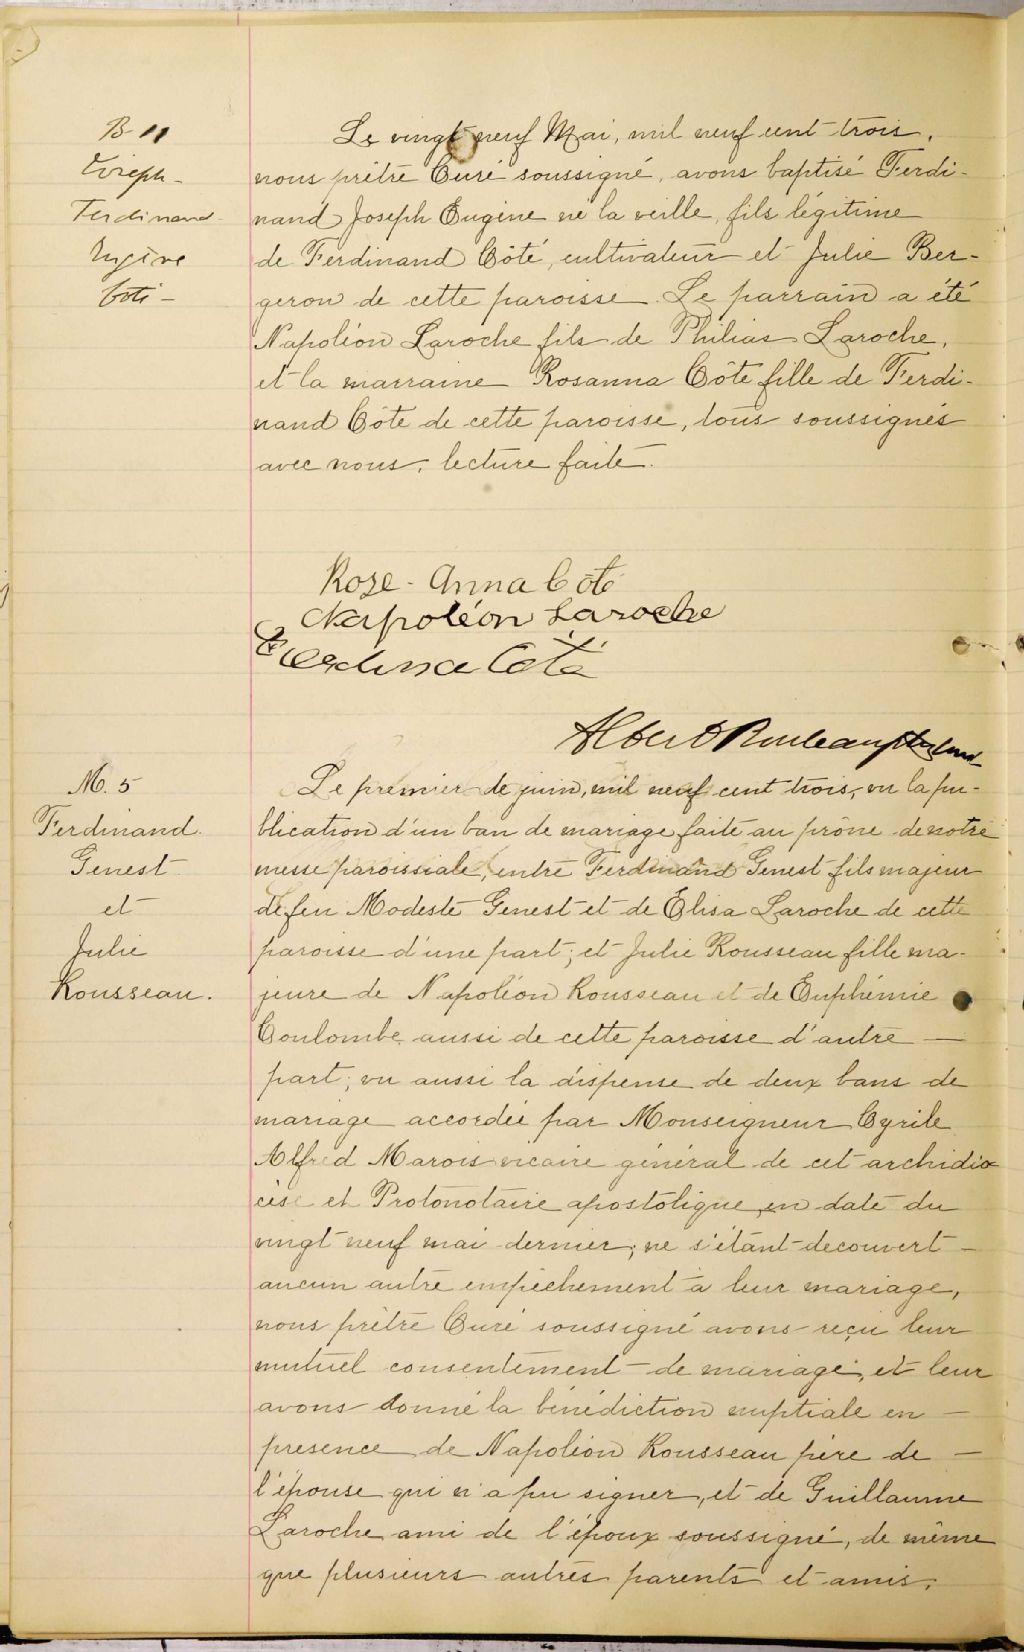 B 11
Joseph-
Ferdinand-
Eugène
Coté-
Le vingt neuf Mai, mil neuf cent trois,
nous prêtre Curé soussigné, avons baptisé Ferdi-
nand Joseph Eugène né la veille, fils légitime
de Ferdinand Côté, cultivateur et Julie Ber-
geron de cette paroisse. Le parrain a été
Napoléon Laroche fils de Philias Laroche,
et la marraine Rosanna Côté fille de Ferdi-
nand Côté de cette paroisse, tous soussignés
avec nous, lecture faite.
Rose-Anna Côté
Napoléon Laroche
Ferdina Côté
Albert Rouleau ptre curé
M. 5
Ferdinand
Genest
et
Julie
Rousseau.
Le premier de juin, mil neuf cent trois, vu la pu-
blication d'un ban de mariage faite au prône de notre
messe paroissiale, entre Ferdinand Genest fils majeur
de feu Modeste Genest et de Élisa Laroche de cette
paroisse d'une part; et Julie Rousseau fille ma-
jeure de Napoléon Rousseau et de Euphémie
Coulombe aussi de cette paroisse d'autre —
part; vu aussi la dispense de deux bans de
mariage accordée par Monseigneur Cyrile
Alfred Marois vicaire général de cet archidio
cèse et Protonotaire apostolique, en date du
vingt neuf mai dernier; ne s'étant decouvert —
aucun autre empêchement à leur mariage,
nous prêtre Curé soussigné avons reçu leur
mutuel consentement de mariage, et leur
avons donné la bénédiction nuptiale en —
presence de Napoléon Rousseau père de —
l'épouse qui n'a pu signer, et de Guillaume
Laroche ami de l'époux soussigné, de même
que plusieurs autres parents et amis.